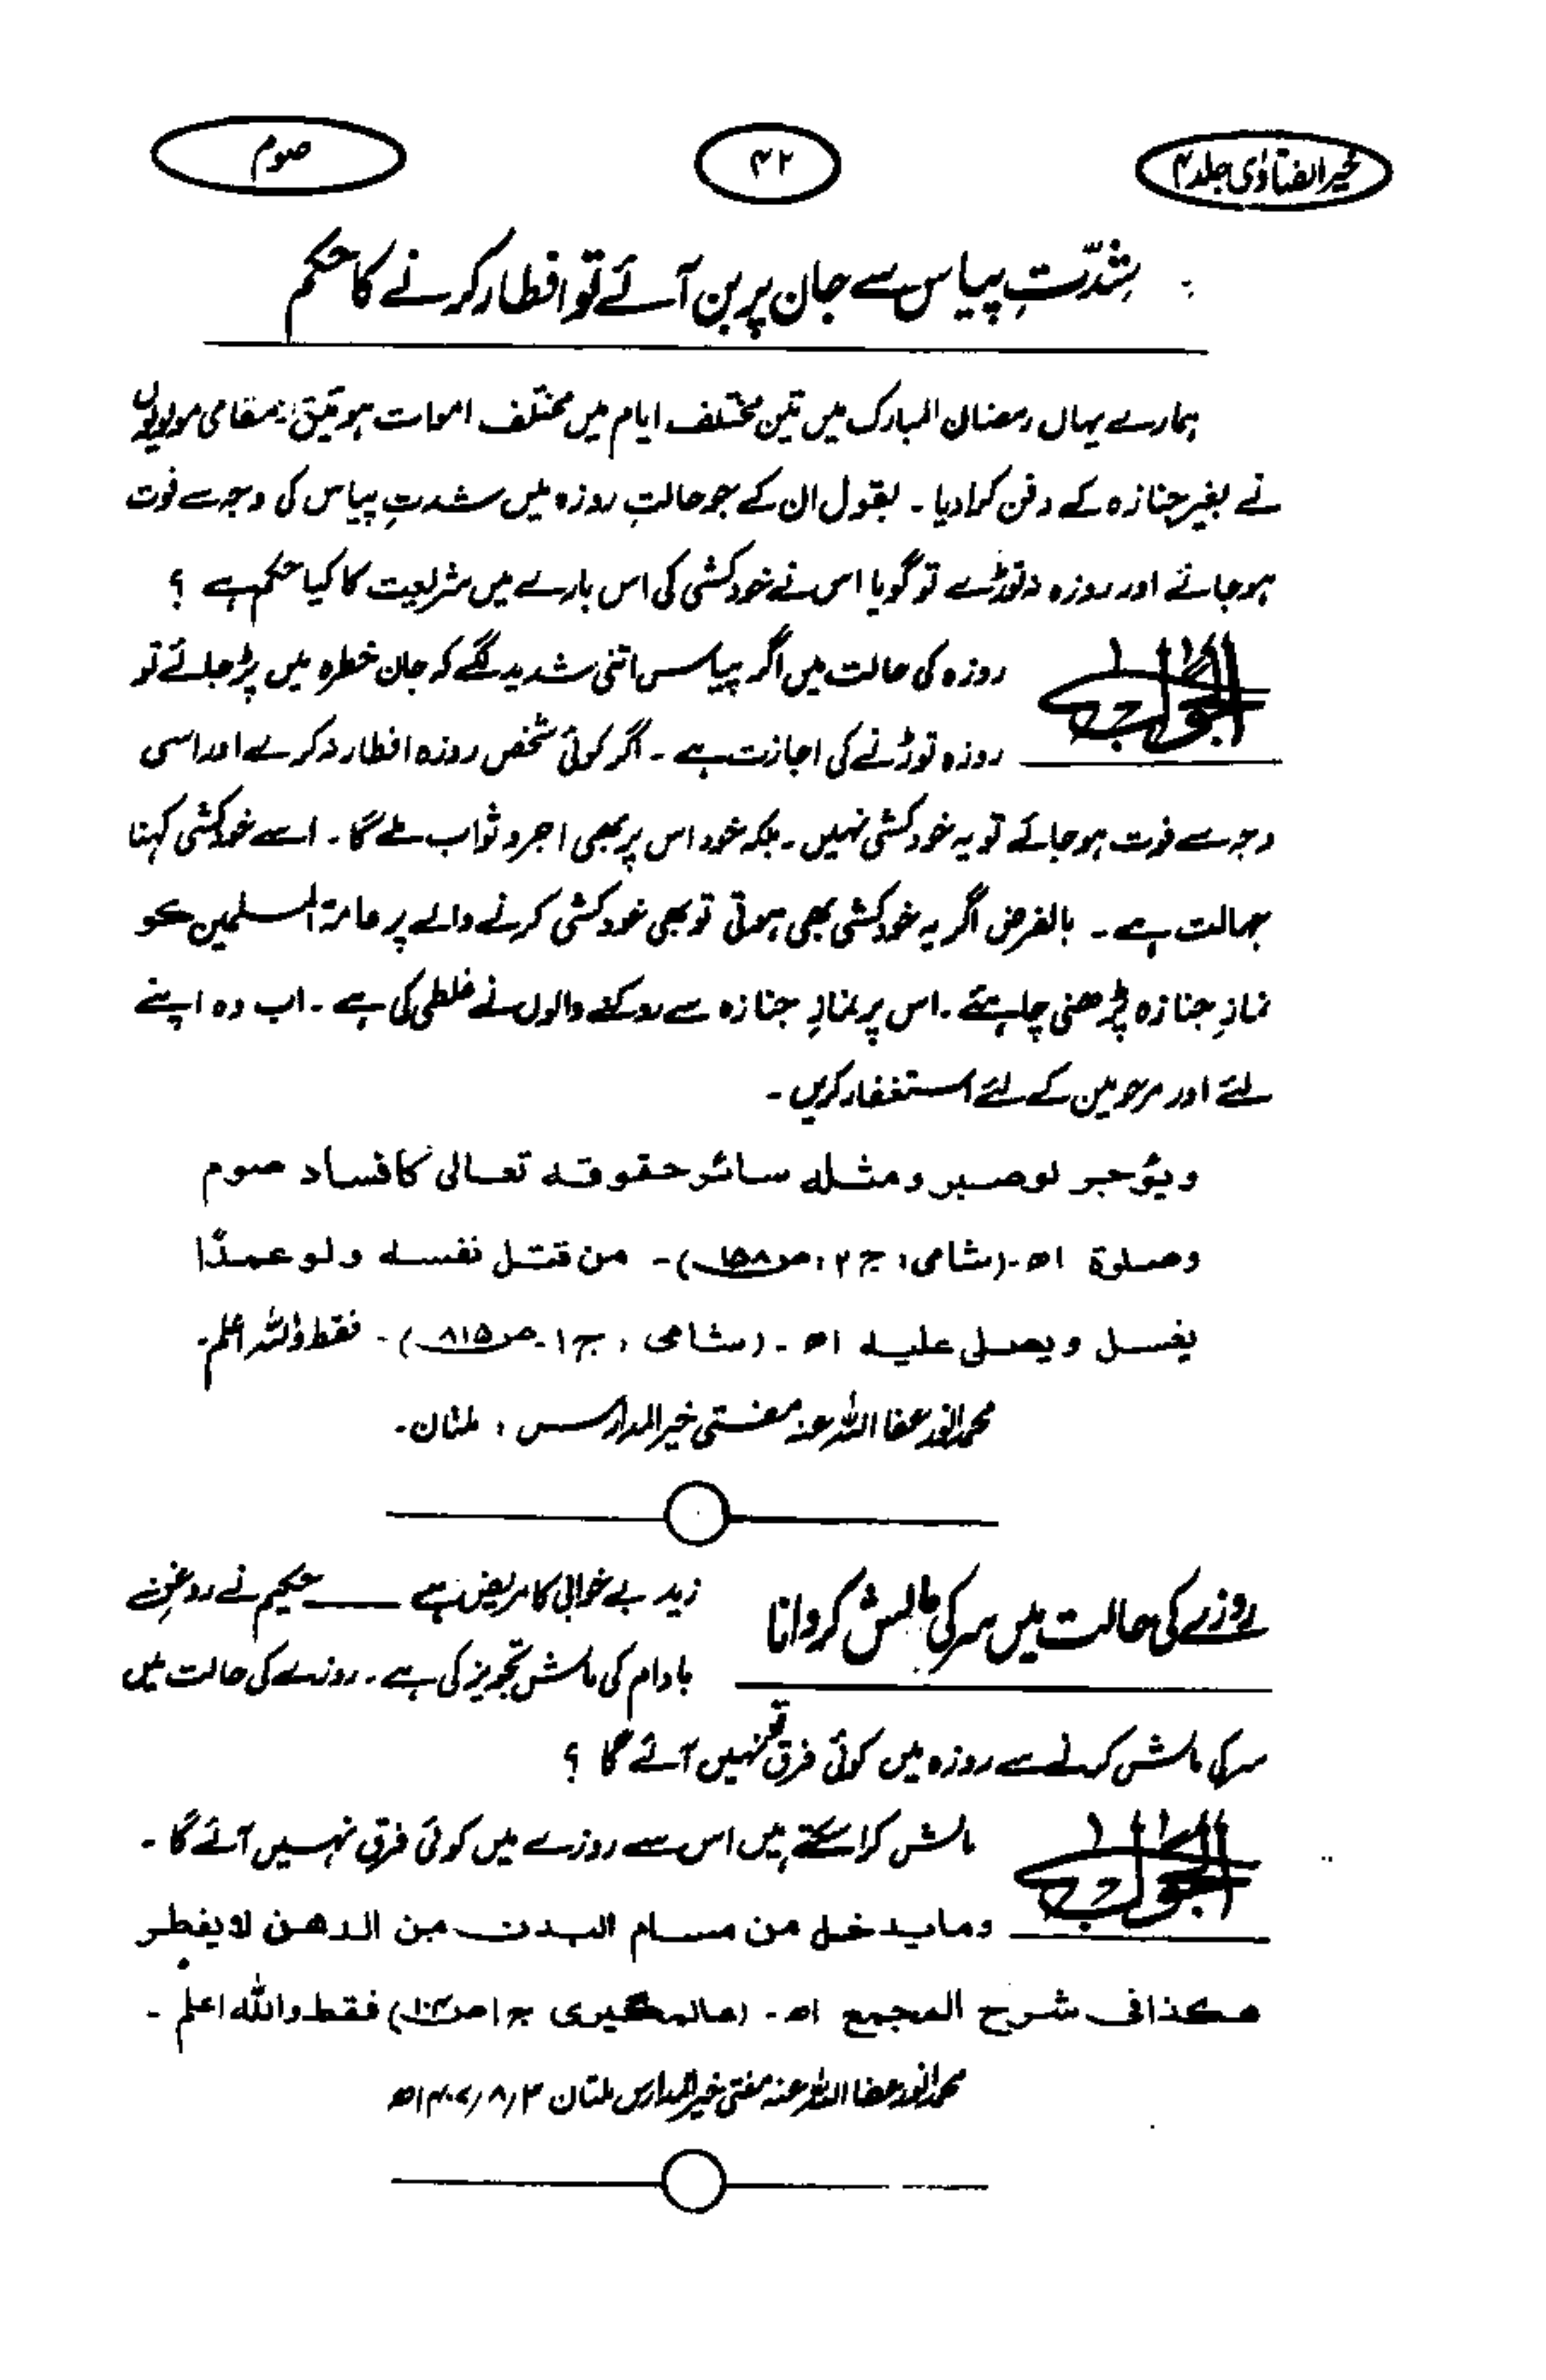 خیر الفتاوٰی جلد ۴
۴۲
صوم
شدّتِ پیاس سے جان پر بن آئے تو افطار کرنے کا حکم
ہمارے یہاں رمضان المبارک میں تین مختلف ایام میں مختلف اموات ہوئیں مقامی مولویوں
نے بغیر جنازہ کے دفن کرا دیا ۔ بقول ان کے جو حالتِ روزہ میں شدتِ پیاس کی وجہ سے فوت
ہو جائے اور روزہ نہ توڑے تو گویا اس نے خودکشی کی اس بارے میں شریعت کا کیا حکم ہے ؟
الجواب
روزہ کی حالت میں اگر پیاس اتنی شدید لگے کہ جان خطرہ میں پڑ جائے تو
روزہ توڑنے کی اجازت ہے ۔ اگر کوئی شخص روزہ افطار نہ کرے اور اسی
وجہ سے فوت ہو جائے تو یہ خودکشی نہیں ۔ بلکہ خود اس پر بھی اجر و ثواب ملے گا ۔ اسے خودکشی کہنا
جہالت ہے ۔ بالفرض اگر یہ خودکشی بھی ہوتی تو بھی خودکشی کرنے والے پر عامۃ المسلمین کو
نمازِ جنازہ پڑھنی چاہئے ۔ اس پر نمازِ جنازہ سے روکنے والوں نے غلطی کی ہے ۔ اب وہ اپنے
لئے اور مرحومین کے لئے استغفار کریں ۔
ویؤجر لو صبر ومثله سائر حقوقه تعالى كافساد صوم
وصلوة اھ ۔ (شامی، ج ۲، ص ۱۵۸) ۔ من قتل نفسه ولو عمدًا
یغسل ویصلی علیه اھ ۔ (شامی، ج ۱ ۔ ص ۸۱۵) ۔ فقط واللہ اعلم ۔
محمد انور عفا اللہ عنہ مفتی خیر المدارس ، ملتان ۔
روزے کی حالت میں سر کی مالش کروانا
زید بے خوابی کا مریض ہے — حکیم نے روغنِ
بادام کی مالش تجویز کی ہے ۔ روزے کی حالت میں
سر کی مالش کرنے سے روزہ میں کوئی فرق تو نہیں آئے گا ؟
الجواب
مالش کرا سکتے ہیں اس سے روزے میں کوئی فرق نہیں آئے گا ۔
وما یدخل من مسام البدن من الدهن لا یفطر
هكذا فی شرح المجمع اھ ۔ (عالمگیری ج ۱ ص ) فقط واللہ اعلم ۔
محمد انور عفا اللہ عنہ مفتی خیر المدارس ملتان ۳/۸/۱۴۰۷ھ